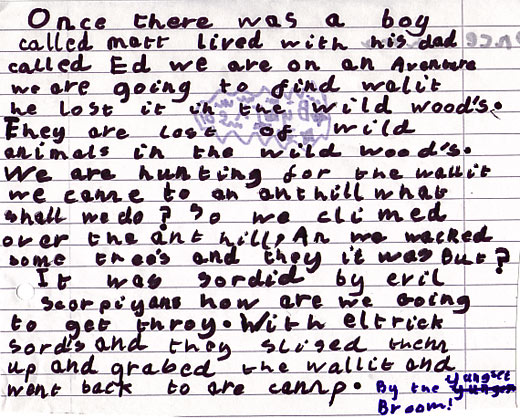 Once there was a boy
called matt lived with his dad
called Ed we are on an Aventure
we are going to find walit
he lost it in the wild wood's.
They are lost of wild
animals in the wild wood's.
We are hunting for the wallit
we came to an anthill what
shall we do? So we climed
over the ant hill, An we wacked
some tree's and they it was But?
It was sordid by evil
scorpiyans how are we going
to get throy. With eltrick
sords and they slised them
up and grabed the wallit and
went back to are camp.
By the yungset
Broom!